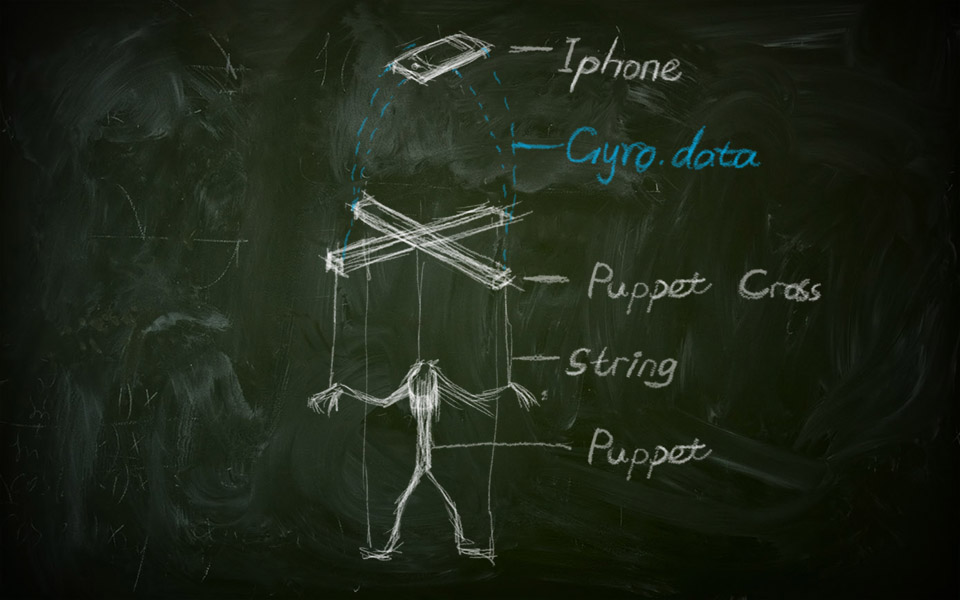 Iphone
Gyro.data
Puppet Cross
String
Puppet